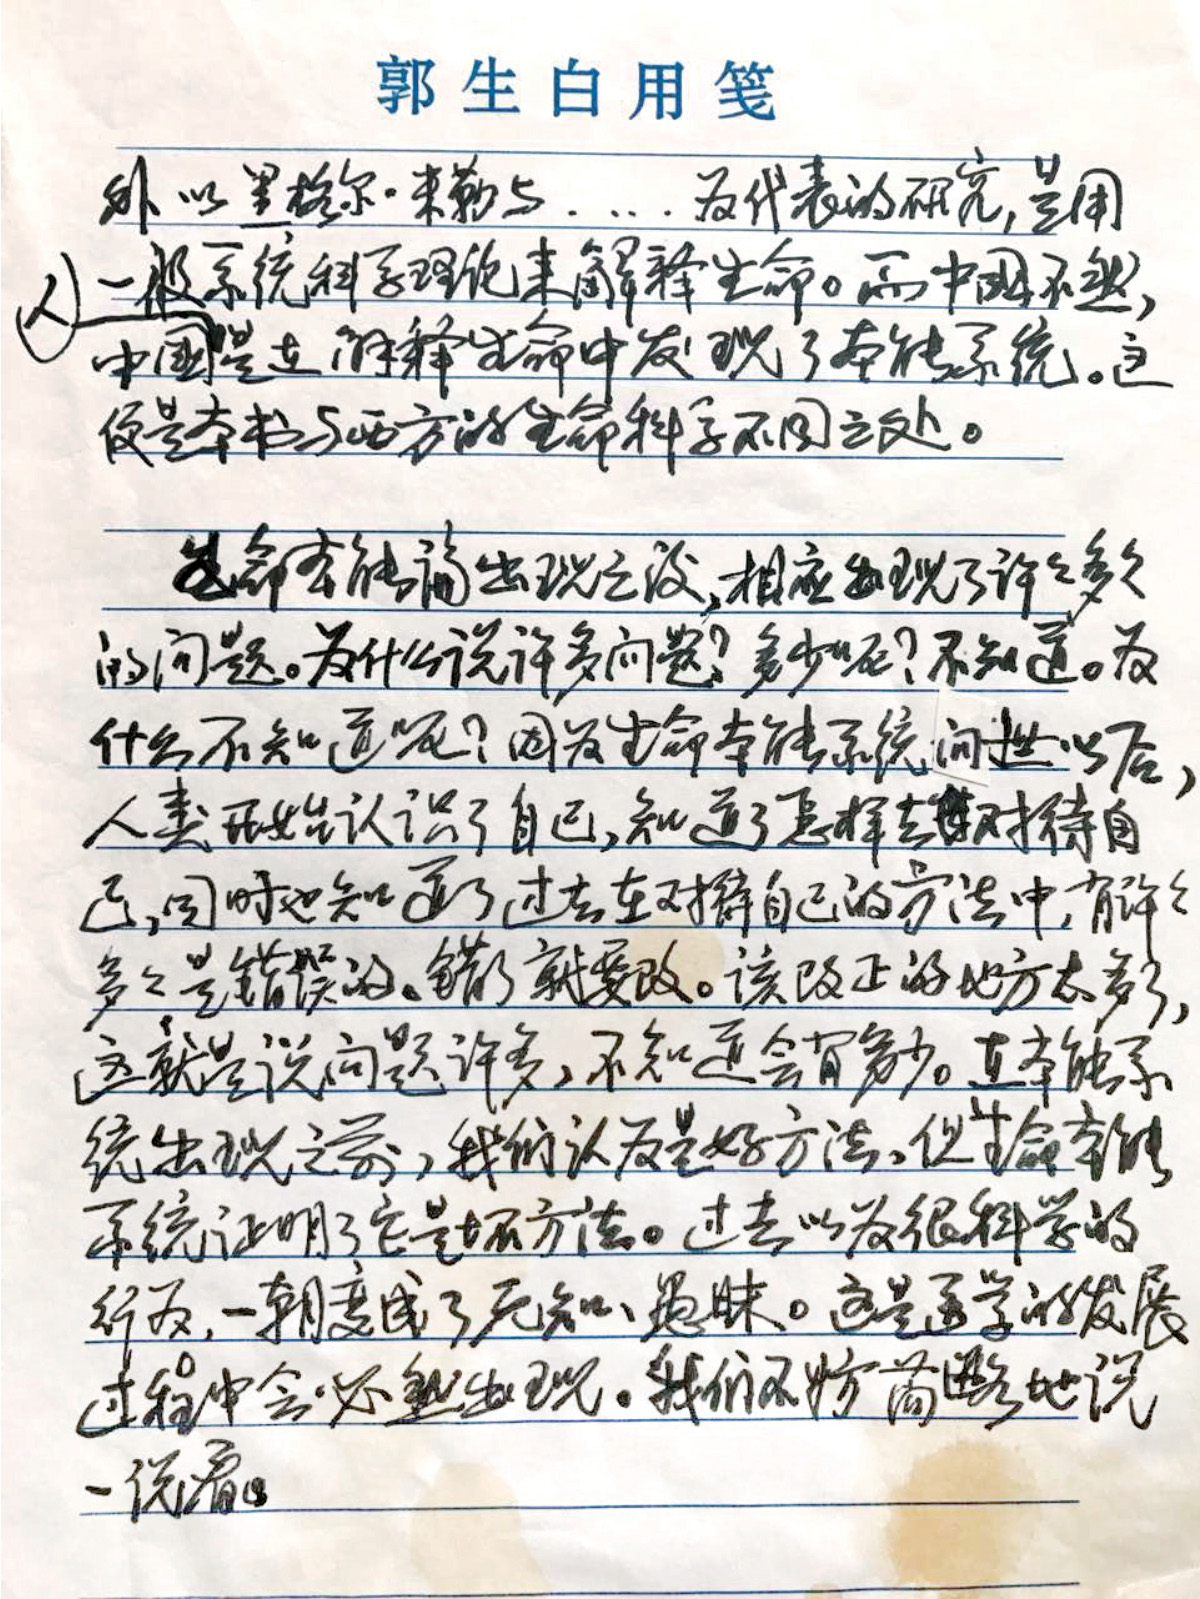 郭生白用笺
外以里格尔·米勒与....为代表的研究,是用
一般系统科学理论来解释生命。而中国不然,
人
中国是在解释生命中发现了本能系统。这
便是本书与西方的生命科学不同之处。
生命本能论出现之后,相应出现了许々多々
的问题。为什么说许多问题?多少呢?不知道。为
什么不知道呢?因为生命本能系统问世以后,
人类开始认识了自己,知道了怎样去对待自
己,同时也知道了过去在对待自己的方法中,有许々
多々是错误的。错了就要改。该改正的地方太多了,
这就是说问题许多,不知道会有多少。在本能系
统出现之前,我们认为是好方法,但生命本能
系统证明了它是坏方法。过去以为很科学的
行为,一朝变成了无知、愚昧。这是医学的发展
过程中会必然出现。我们不妨简略地说
一说看。